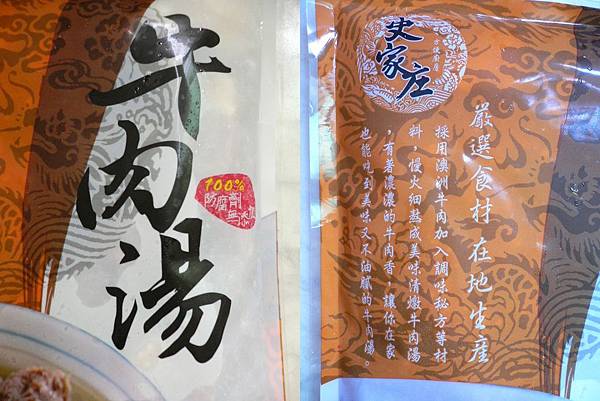 牛肉湯
100%
防腐劑
無添加
史家庄
嚴選食材 在地生產
採用澳洲牛肉加入調味秘方等材
料，慢火細熬成美味清燉牛肉湯
，有著濃濃的牛肉香，讓你在家
也能吃到美味又不油膩的牛肉湯。